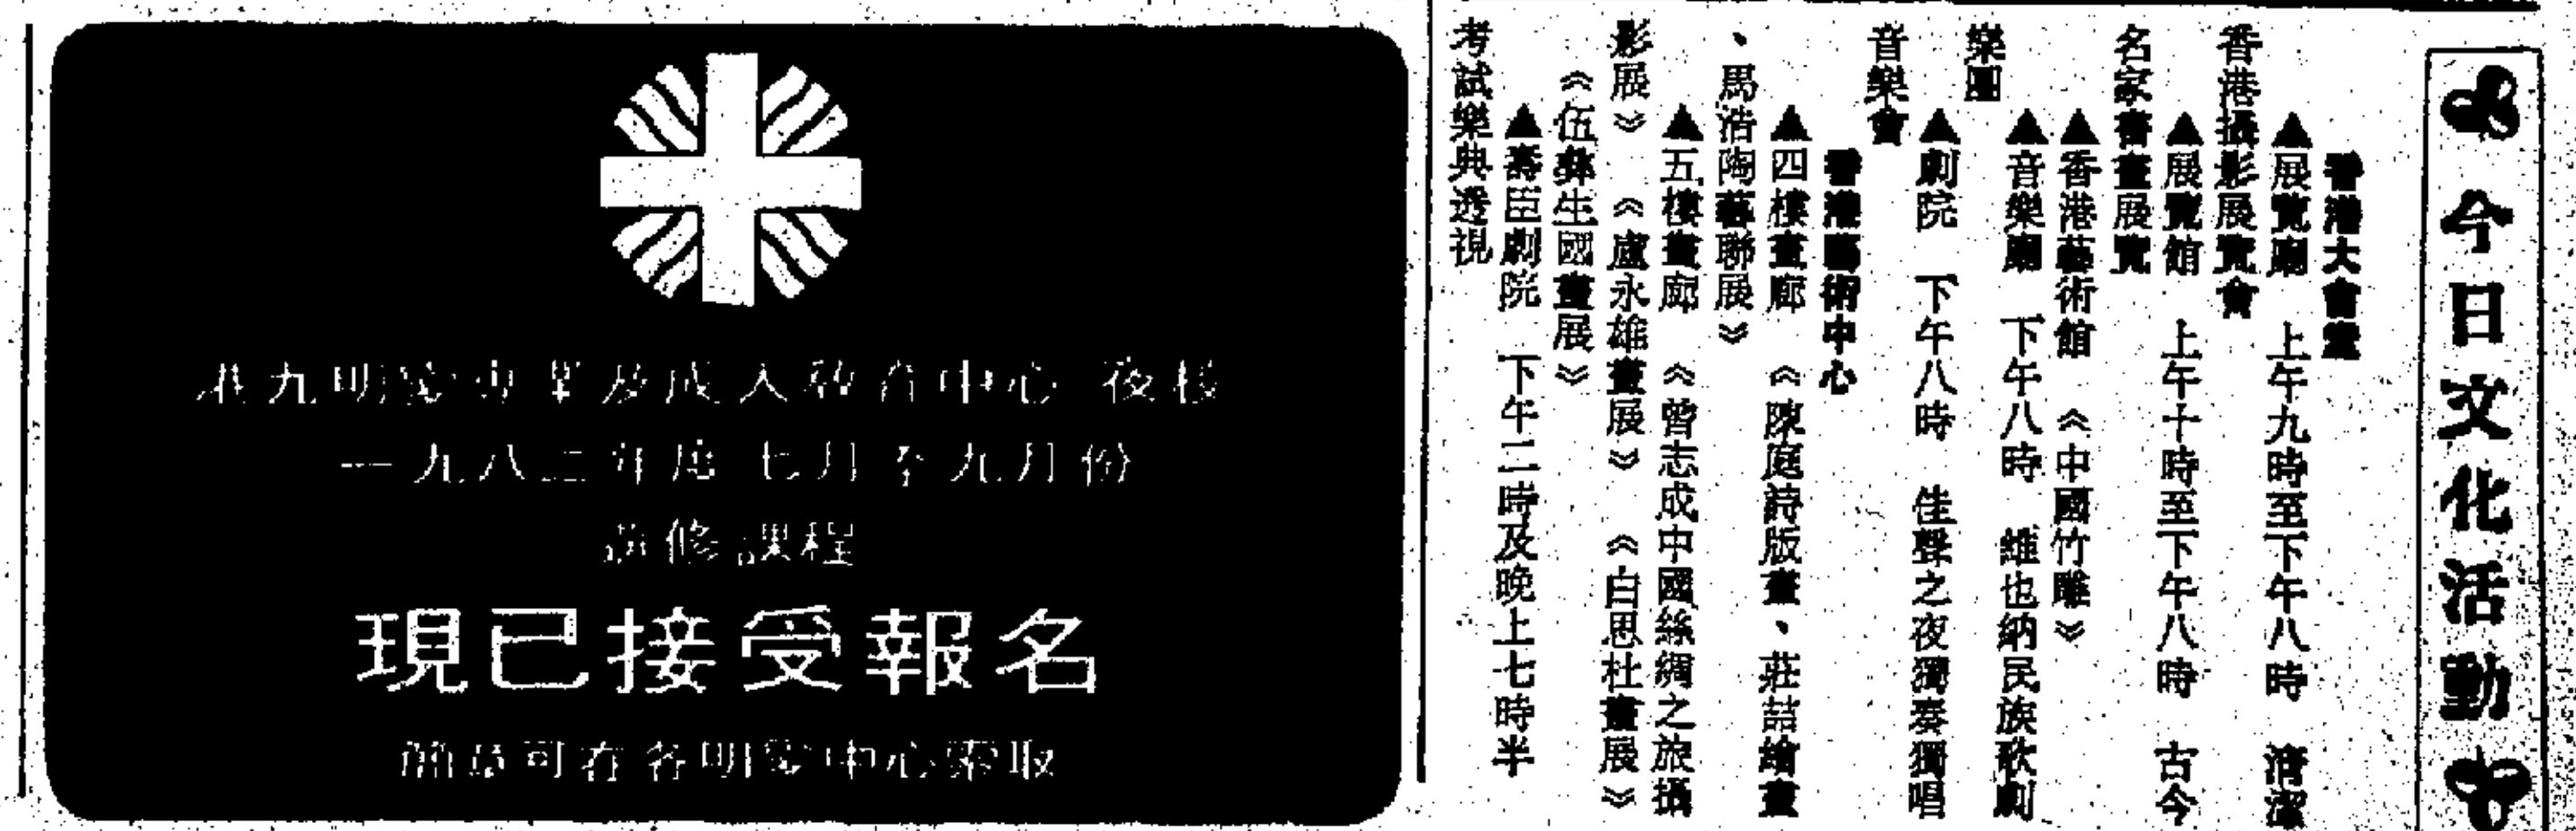 今日文化活動
香港大會堂
▲展覽廳　上午九時至下午八時　清潔
香港攝影展覽會
▲展覽館　上午十時至下午八時　古今
名家書畫展覽
▲香港藝術館　《中國竹雕》
▲音樂廳　下午八時　維也納民族歌劇
樂團
▲劇院　下午八時　佳聲之夜獨奏獨唱
音樂會
香港藝術中心
▲四樓畫廊　《陳庭詩版畫、莊喆繪畫
、馬浩陶藝聯展》
▲五樓畫廊　《曾志成中國絲綢之旅攝
影展》　《盧永雄畫展》　《白思杜畫展》
《伍彝生國畫展》
▲壽臣劇院　下午二時及晚上七時半
考試樂典透視
港九明愛專業及成人教育中心 夜校
一九八二年度 七月至九月份
選修課程
現已接受報名
簡章可在各明愛中心索取